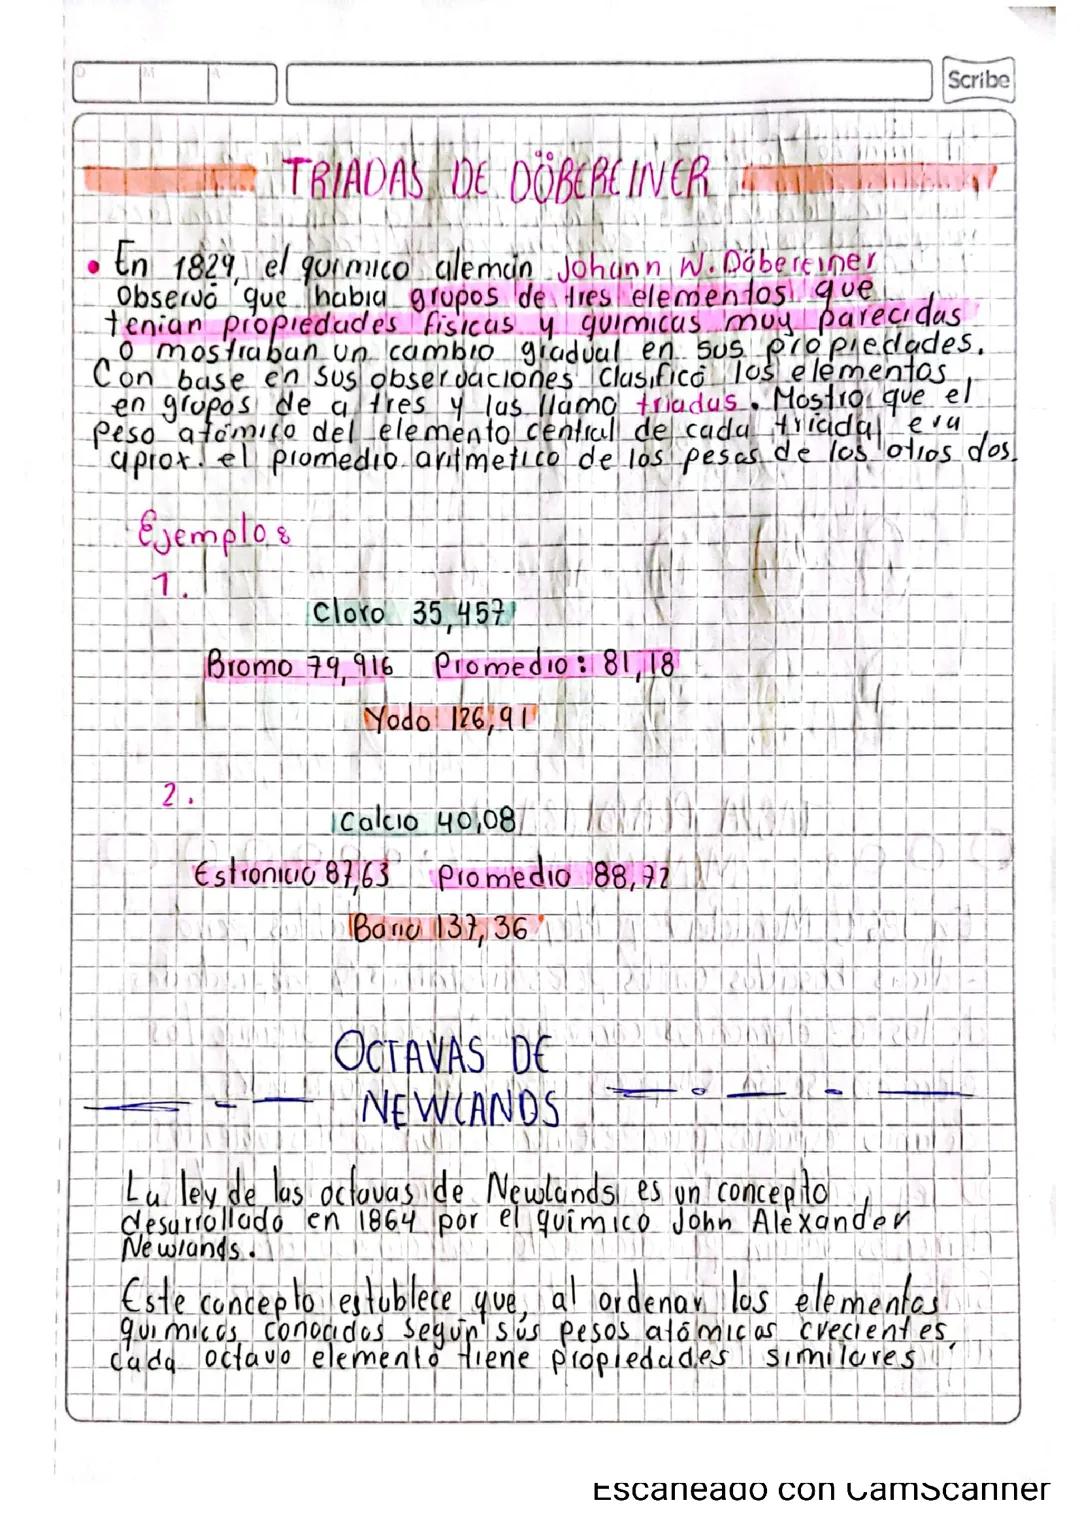 D M A
Scribe
TRIADAS DE DÖBEREINER
• En 1829, el quimico alemán Johann W. Döbereiner
Observó que habia grupos de tres elementos que
tenian propiedades fisicas y quimicas muy parecidas
o mostraban un cambio gradual en sus propiedades.
Con base en sus observaciones clasificó los elementos
en grupos de a tres y las llamo triadas. Mostro que el
Peso atómico del elemento central de cada triada era
aprox. el promedio aritmetico de los pesos de los otros dos.
Ejemplos
1.
Cloro 35,457
Bromo 79,916 Promedio: 81,18
Yodo 126,91
2.
Calcio 40,08
Estroncio 87,63 Promedio 88,72
Bario 137,36
OCTAVAS DE
NEWLANDS
La ley de las octavas de Newlands es un concepto
desarrollado en 1864 por el químico John Alexander
Newlands.
Este concepto establece que, al ordenar los elementos
quimicos conocidos según sus pesos atómicos crecientes,
cada octavo elemento tiene propiedades similares
Escaneado con CamScanner